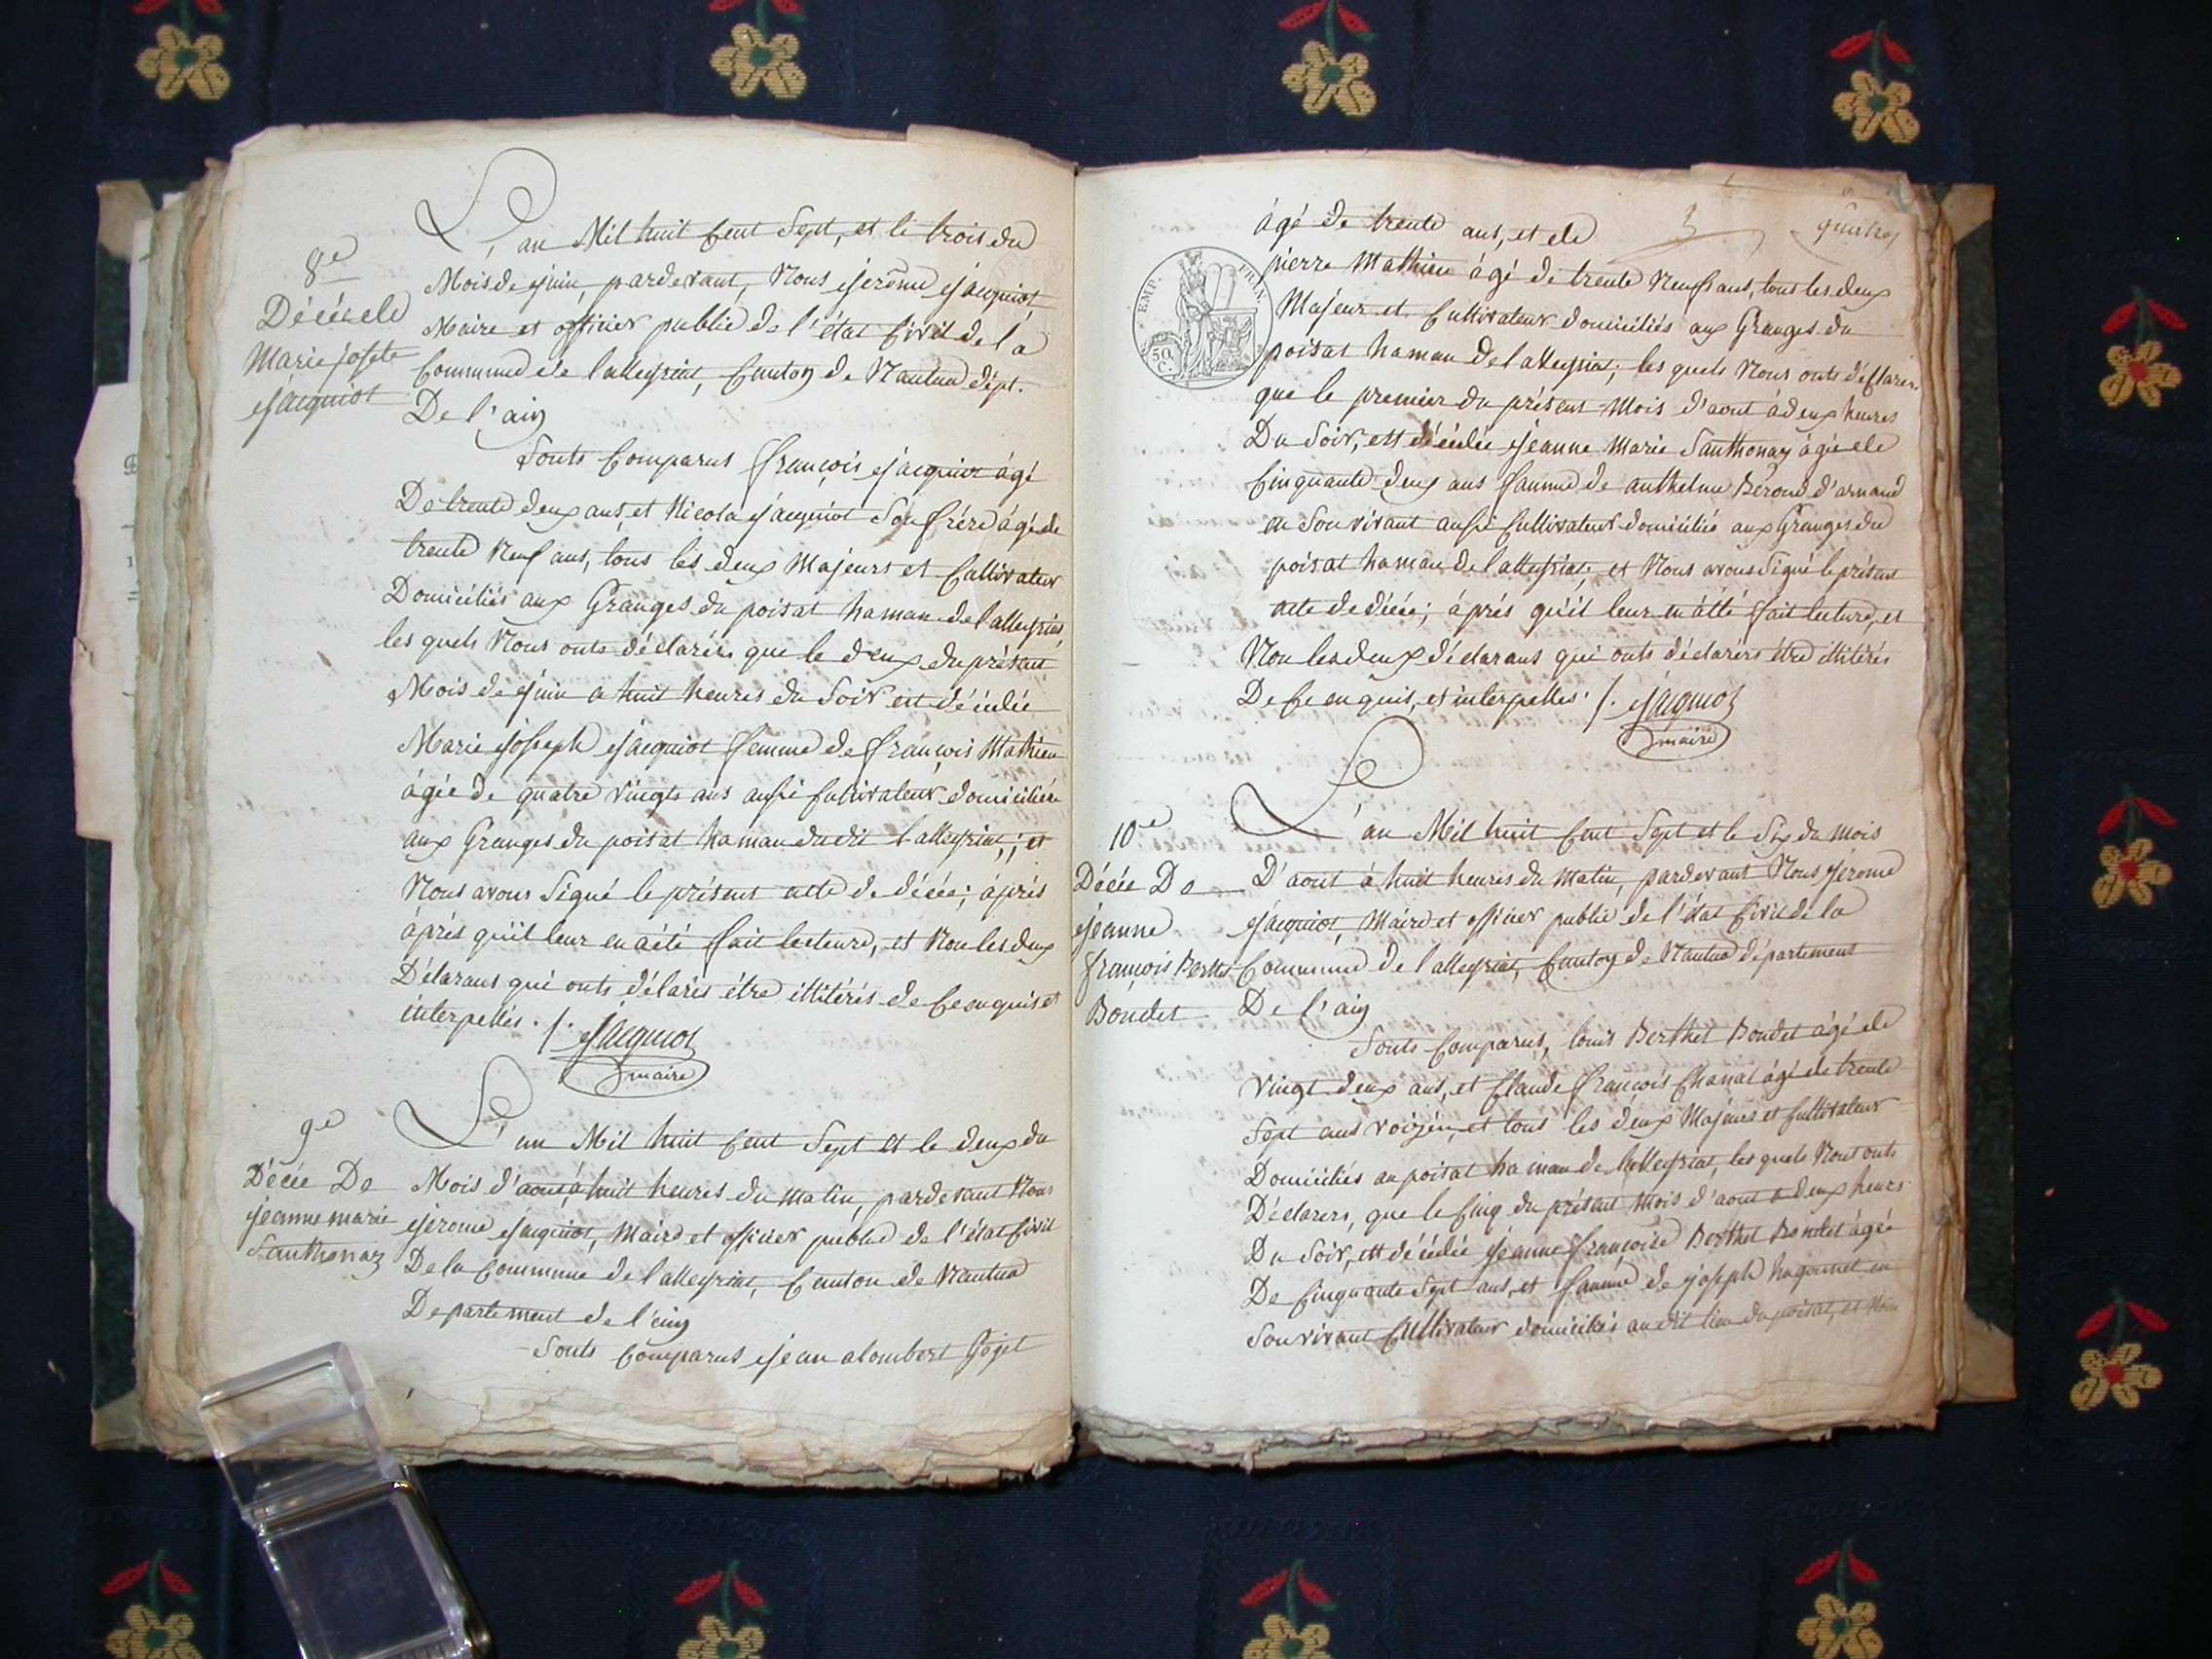 8e
Décés de
Marie josete
Jacquiot
L'an Mil huit Cent Sept, et le trois du
Mois de Juin, pardevant, Nous Jerôme Jacquiot
Maire et officier public de l'état Civil de la
Commune de lalleyriat, Canton de Nantua dépt.
De l'ain
Sonts Comparus françois Jacquiot âgé
De trente deux ans, et Nicola Jacquiot Son frére âgé de
trente Neuf ans, tous les deux Majeurs et Cultivateur
Domiciliés aux Granges du poisat hamau de lalleyriat
les quels Nous onts déclarérs que le deux du présant
Mois de Juin a huit heures du Soir est décédée
Marie Joseph Jacquiot femme de françois Mathieu
âgée de quatre vingts ans aussi Cultivateur domiciliére
aux Granges du poisat hamau dudit lalleyriat; et
Nous avons Signé le présent acte de décée; aprés
aprés qu'il leur en aété fait lecteure, et Non les deux
Déclarans qui onts déclarés étre illitérés de Ce enquis et
interpellés ./. Jacquiot
maire
9e
Décée De
jeanne marie
Santhonax
L'an Mil huit Cent Sept et le deux du
Mois d'aout, à huit heures du matin, pardevant Nous
Jerome Jacquiot, Maire et officier public de l'état Civil
De la Commune de lalleyriat, Canton de Nantua
Departement de l'ain
Sonts Comparus Jean alombert Goget
3
quatre
EMP. FRAN.
50 C.
âgé de trente ans, et de
pierre Mathieu âgé de trente Neuf ans, tous les deux
Majeur et Cultivateur domiciliés aux Granges du
poisat hamau de lalleyriat; les quels Nous onts déclarér
que le premier du présent Mois d'aout à deux heures
Du Soir, est décédée Jeanne Marie Santhonax âgée de
Cinquante deux ans famme de anthelme Béroud d'arnaud
en Son vivant aussi Cultivateur domiciliée aux Granges du
poisat hamau de lalleyriat; et Nous avons Signé le présent
acte de décée; aprés qu'il leur en aété fait lecture, et
Non les deux déclarans qui onts déclarérs étre illitérés
De Ce enquis, et interpellés ./. Jacquiot
maire
10e
Décée De
Jeanne
françois Berthet
Bondet
L'an Mil huit Cent Sept et le Six du mois
D'aout à huit heures du matin, pardevant Nous Jérome
Jacquiot, Maire et officier public de l'état Civil de la
Commune de lalleyriat, Canton de Nantua département
De l'ain
Sonts Comparus, louis Berthet Bondet âgé de
vingt deux ans, et Claude françois Chanal âgé de trente
Sept ans voizin, et tous les deux Majeurs et Cultivateur
Domiciliés au poisat hamau de lalleyriat, les quels Nous onts
Déclarers, que le Cinq du présent mois d'aout a deux heurs
Du Soir, est décédée Jeanne françoise Berthet Bondet âgée
De Cinquante Sept ans, et famme de joseph hugonnet en
Son vivant Cultivateur domiciliés audit lieu du poisat, et Nous